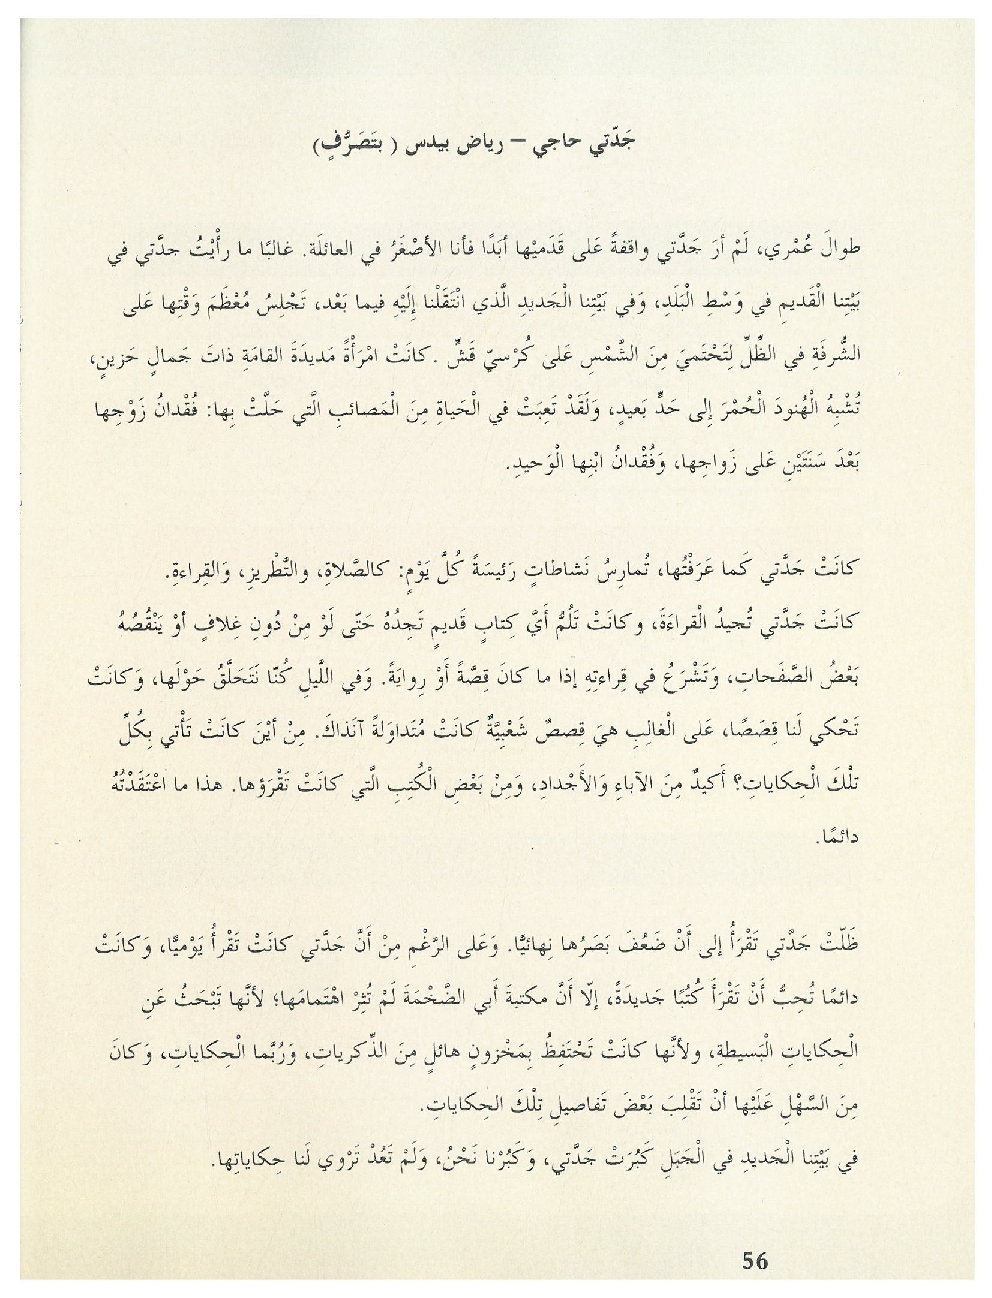 جَدّتي حاجي – رياض بيدس ( بتَصَرُّفٍ)
طوالَ عُمْري، لَمْ أرَ جَدَّتي واقفةً عَلى قَدَميْها أبَدًا فأنا الأصْغَرُ في العائلَة. غالبًا ما رأَيْتُ جدَّتي في
بَيْتِنا الْقَديم في وَسْطِ الْبَلَدِ، وَفي بَيْتِنا الْجَديدِ الَّذي انْتَقَلْنا إلَيْهِ فيما بَعْد، تَجْلِسُ مُعْظَمَ وَقْتِها عَلى
الشُّرفَةِ في الظِّلِّ لِتَحْتَميَ مِنَ الشَّمْسِ عَلى كُرْسيّ قَشٍّ .كانَتْ امْرَأْةً مَديدَةَ القامَةِ ذاتَ جَمالٍ حَزينٍ،
تُشْبِهُ الْهُنودَ الْحُمْرَ إلى حَدٍّ بَعيدٍ، وَلَقَدْ تَعِبَتْ في الْحَياةِ مِنَ الْمَصائبِ الَّتي حَلَّتْ بِها: فُقْدانُ زَوْجِها
بَعْدَ سَنَتَيْنِ عَلى زَواجِها، وَفُقْدانُ ابْنِها الْوَحيدِ.
كانَتْ جَدَّتي كَما عَرَفْتُها، تُمارِسُ نَشاطاتٍ رَئيسَةً كُلَّ يَوْمٍ: كالصَّلاةِ، والتَّطْريزِ، وَالقِراءةِ.
كانَتْ جَدَّتي تُجيدُ الْقراءَةَ، وكانَتْ تَلُمُّ أَيَّ كِتابٍ قَديمٍ تَجِدُهُ حَتّى لَوْ مِنْ دُونِ غِلافٍ أوْ يَنْقُصُهُ
بَعْضُ الصَّفَحاتِ، وَتَشْرَعُ في قِراءتِهِ إذا ما كانَ قِصَّةً أَوْ رِوايَةً. وَفي اللَّيلِ كُنّا نَتَحَلَّقُ حَوْلَها، وَكانَتْ
تَحْكي لَنا قِصَصًا، عَلى الْغالِبِ هيَ قِصصٌ شَعْبِيَّةٌ كانَتْ مُتَداوَلةً آنَذاكَ. مِنْ أيْنَ كانَتْ تَأْتي بِكُلِّ
تلْكَ الْحِكاياتِ؟ أَكيدٌ مِنَ الآباءِ وَالأَجْدادِ، وَمِنْ بَعْضِ الْكُتِبِ الَّتي كانَتْ تَقْرَؤها. هذا ما اعْتَقَدْتُهُ
دائمًا.
ظَلّتْ جَدَّتي تَقْرَأُ إلى أَنْ ضَعُفَ بَصَرُها نِهائيًّا. وَعَلى الرَّغْمِ مِنْ أَنَّ جَدَّتي كانَتْ تَقْرأُ يَوْميًّا، وَكانَتْ
دائمًا تُحِبُّ أَنْ تَقْرَأَ كُتُبًا جَديدَةً، إلّا أَنَّ مكتبةَ أَبي الضَّخْمَةَ لَمْ تُثِرْ اهْتمامَها؛ لأنَّها تَبْحَثُ عَنِ
الْحِكاياتِ الْبَسيطةِ، ولأنَّها كانَتْ تَحْتَفِظُ بِمَخْزونٍ هائلٍ مِنَ الذِّكرياتِ، وَرُبَّما الْحِكاياتِ، وَكانَ
مِنَ السَّهْلِ عَلَيْها أنْ تَقْلِبَ بَعْضَ تَفاصيلِ تِلْكَ الحِكاياتِ.
في بَيْتِنا الْجَديدِ في الْجَبَلِ كَبُرَتْ جَدَّتي، وَكَبُرْنا نَحْنُ، وَلَمْ تَعُدْ تَرْوي لَنا حِكاياتِها.
56